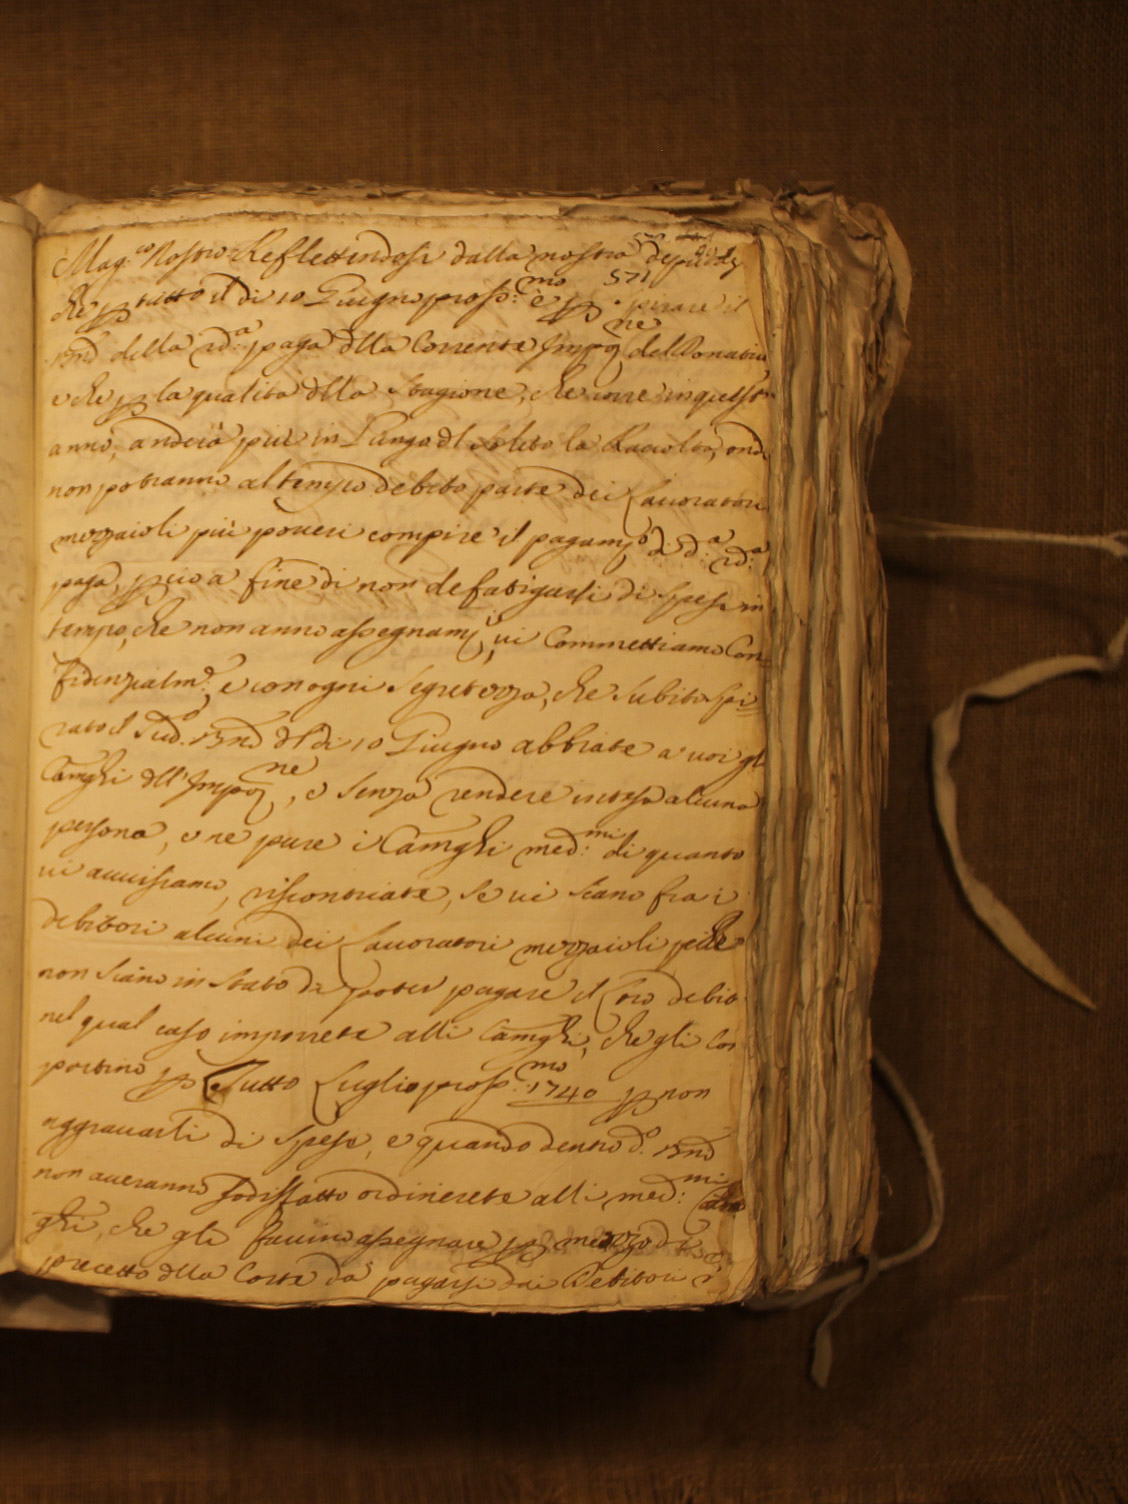 Mag.co Nostro Reflettendosi dalla nostra
571
che p tutto il di 10 Giugno pross.mo è p spirare il
della 2d.a paga dlla Corrente Impo.ne del Donativo
e che p la qualita dlla Stagione, che corre in questo
anno, anderà più in Lungo dl Solito la Raccolta, onde
non potranno al tempo debito parte dei Lavoratori
mezzaioli più poveri compire il pagam.to di d.a 2d.a
paga, p ciò a fine di non defatigarli di spese in
tempo, che non anno assegnam.ti, vi Commettiamo Con-
fidenzialm.e, e con ogni Segretezza, che Subito spi-
rato il Sud.o dl di 10 Giugno abbiate a voi gl
Camghi dll'Impo.ne, e Senza rendere intesa alcuna
persona, e ne pure i Camghi med.mi di quanto
vi avvisiamo, riscontriate, se vi siano fra i
debitori alcuni dei Lavoratori mezzaioli, che
non siano in stato di poter pagare il Loro debito
nel qual caso imporrete alli Camghi, che gli Com
portino p Tutto Luglio pross.mo 1740 p non
aggravarli di spese, e quando dentro d.o
non averanno sodisfatto ordinerete alli med.mi Cam
ghi, che gli faccino assegnare p mezzo di
precetto dlla Corte da pagarsi dai Debitori